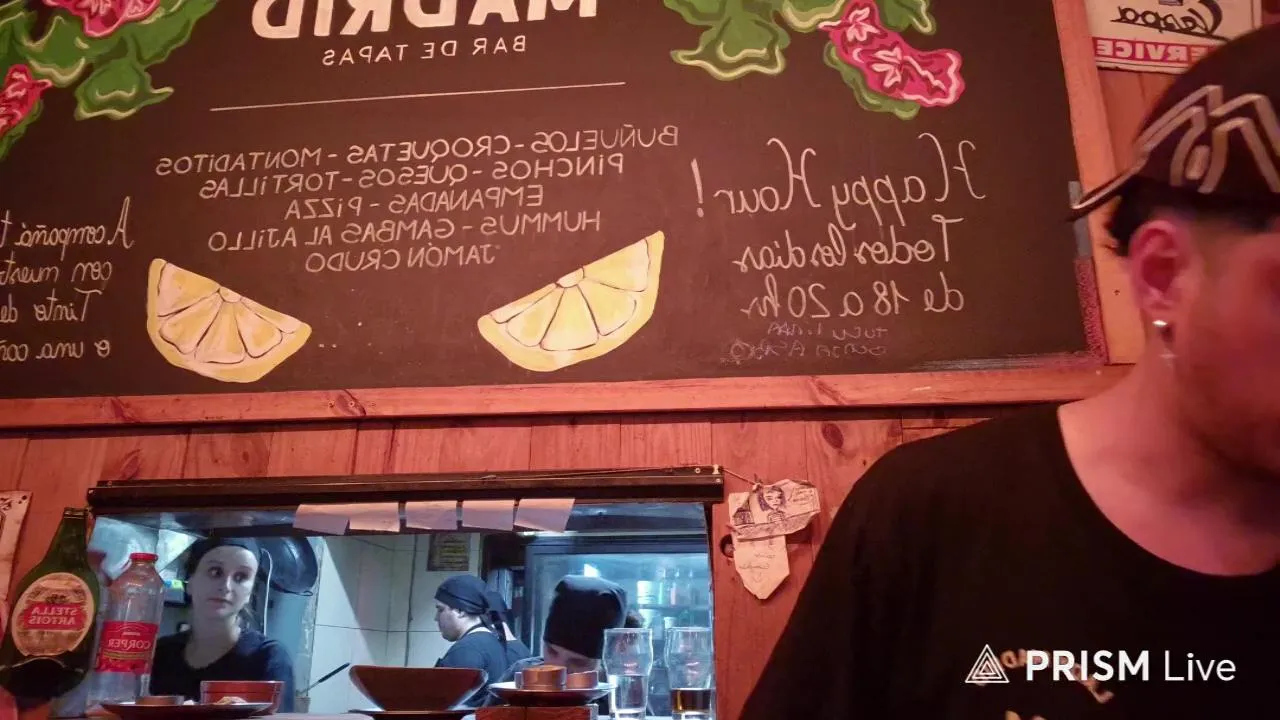 MADRID
BAR DE TAPAS
BUÑUELOS - CROQUETAS - MONTADITOS
PINCHOS - QUESOS - TORTILLAS
EMPANADAS - PIZZA
HUMMUS - GAMBAS AL AJILLO
JAMÓN CRUDO
Happy Hour!
Todos los días
de 18 a 20 hs
Acompañá t
con nuestr
Tinto de
o una cañ
SERVICE
STELLA
ARTOIS
CORPER
PRISM Live